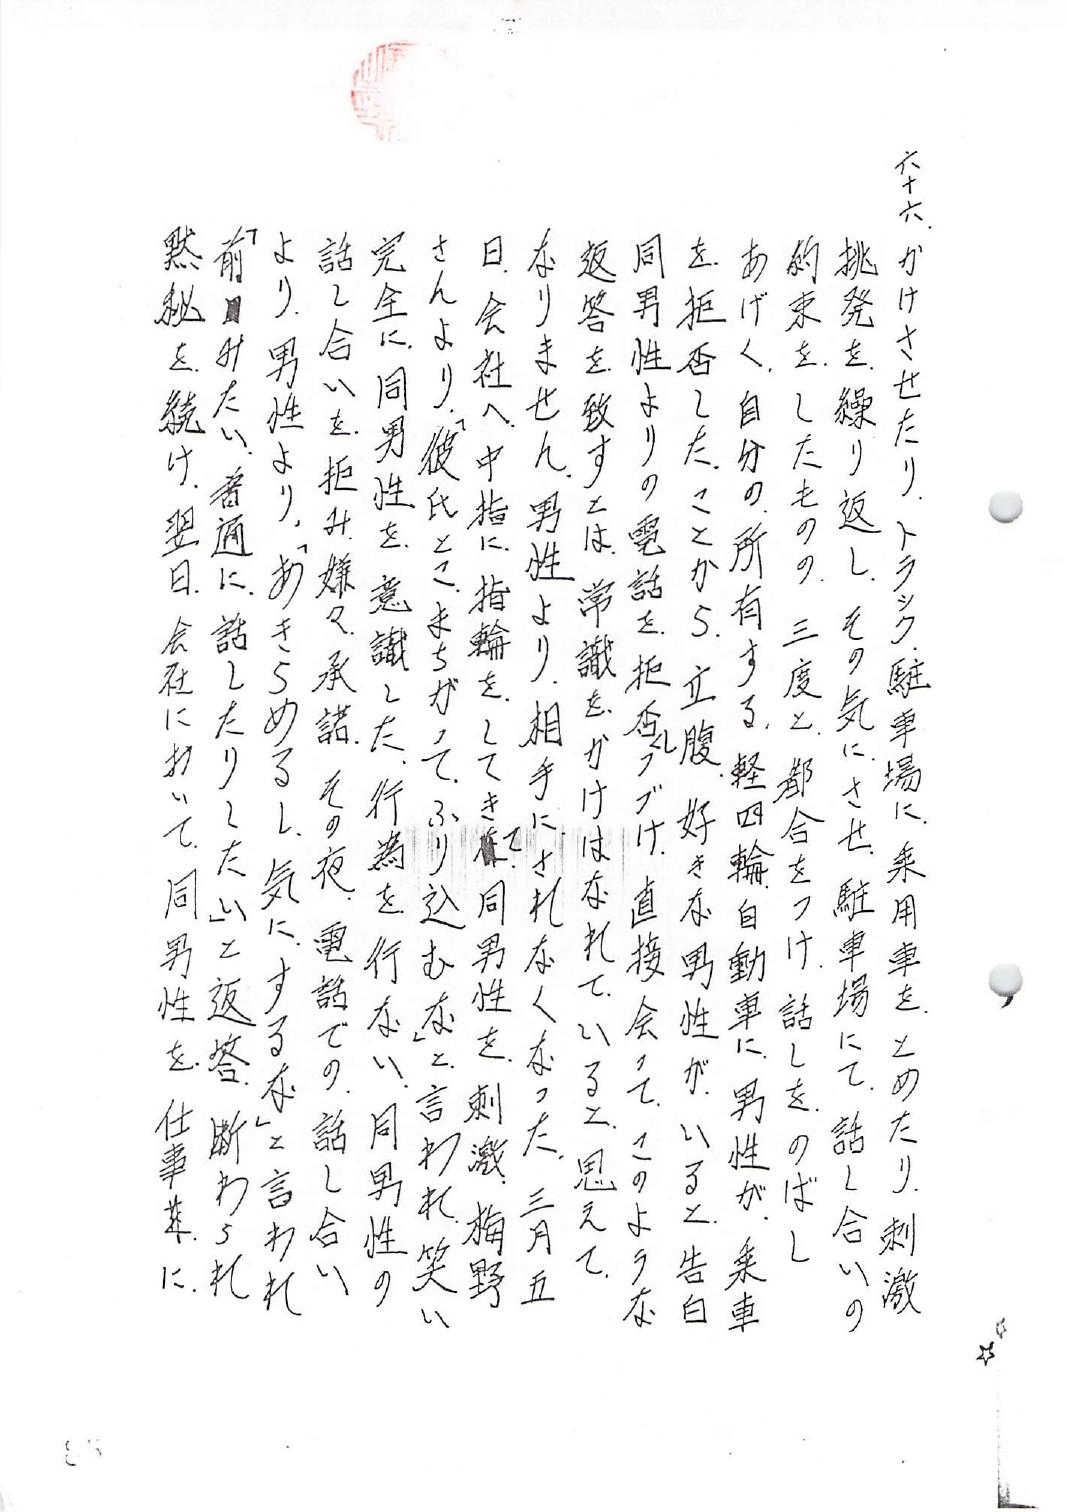 六十六、かけさせたり、トラック、駐車場に、乗用車を、とめたり、刺激
挑発を、繰り返し、その気にさせ、駐車場にて、話し合いの
約束を、したものの、三度と、都合をつけ、話しを、のばし
あげく、自分の、所有する、軽四輪、自動車に、男性が、乗車
を、拒否した、ことから、立腹、好きな、男性が、いると、告白
同男性よりの電話を、拒否しつづけ、直接会って、このような
返答を、致すとは、常識を、かけはなれて、いると、思えて、
なりません、男性より、相手にされなくなった、三月五
日、会社へ、中指に、指輪を、してきて、同男性を、刺激、梅野
さんより、「彼氏とこまちがって、ふり込むな」と言われ、笑い
完全に、同男性を、意識した、行為を、行ない、同男性の
話し合いを、拒み、嫌々、承諾、その夜、電話での、話し合い
より、男性より、「あきらめるし、気に、するな」と言われ
「前みたい、普通に、話したりしたい」と返答、断わられ
黙秘を、続け、翌日、会社において、同男性を、仕事業に、